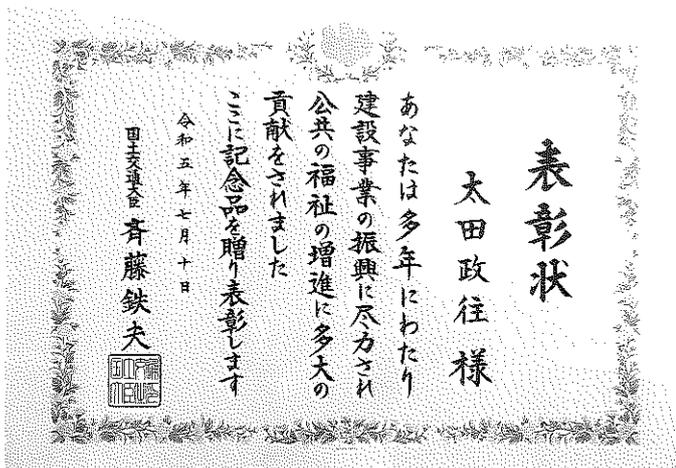 表彰状
太田政往 様
あなたは多年にわたり
建設事業の振興に尽力され
公共の福祉の増進に多大の
貢献をされました
ここに記念品を贈り表彰します
令和五年七月十日
国土交通大臣 斉藤鉄夫